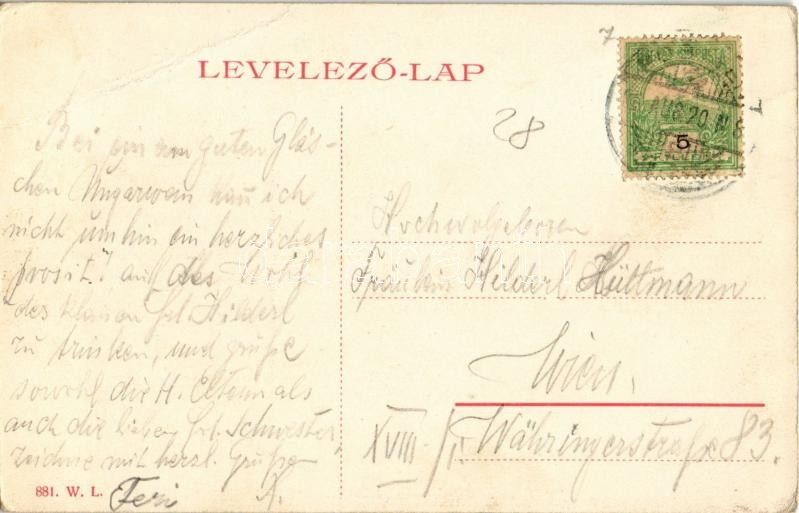 LEVELEZŐ-LAP
28
5
Bei ein em guten Gläs-
chen Ungarwein kan ich
nicht umhin ein herzliches
prosit! auf das Wohl
des kleinen Frl. Hilderl
zu trinken, und grüße
sowohl die H. Eltern als
auch die lieben Frl. Schwester
Zeichne mit herzl. Grüße
Feri
Hochwolgeboren
Fräulein Hilderl Hüttmann
Wien,
XVIII/1. Währingerstraße 83.
881. W. L.